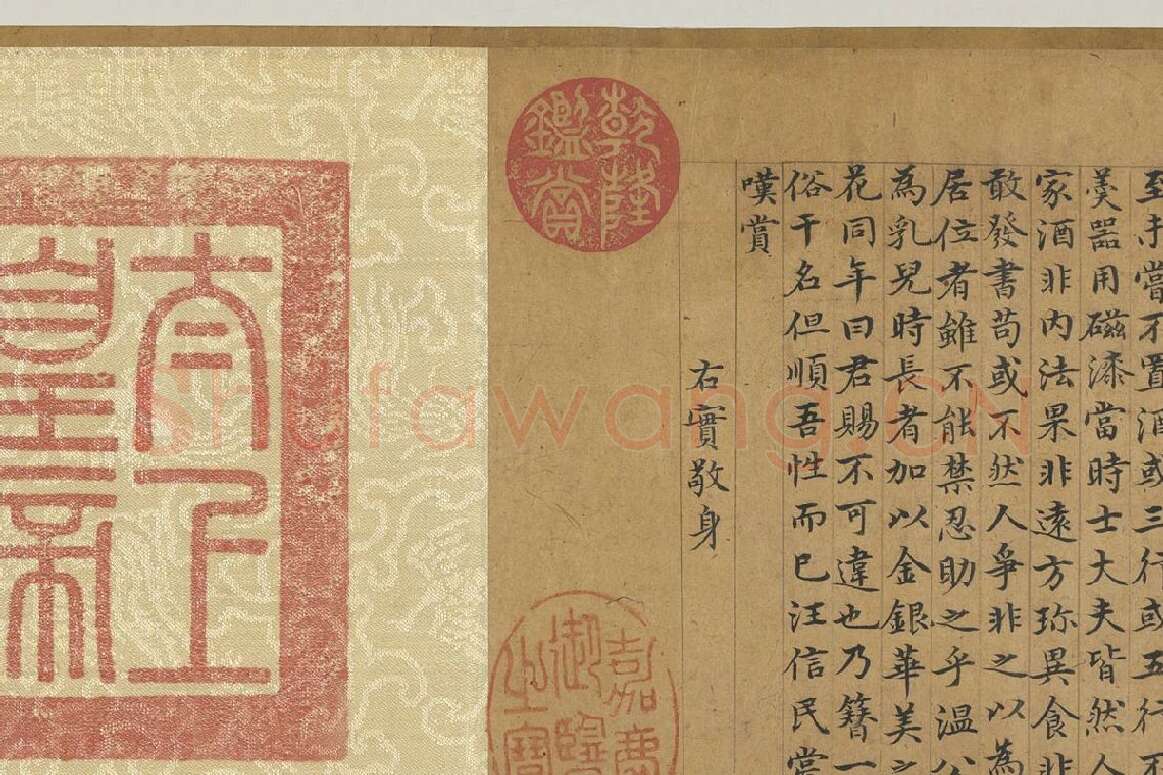 至未嘗不置酒或三行或五行不
羹器用磁漆當時士大夫皆然人
家酒非內法果非遠方珎異食非
敢發書苟或不然人爭非之以為
居位者雖不能禁忍助之乎溫公
為乳兒時長者加以金銀華美之
花同年曰君賜不可違也乃簪一
俗干名但順吾性而已汪信民嘗
嘆賞
右實敬身
乾隆鑑賞
嘉慶御覽之寶
太上皇帝
shufawang.CN